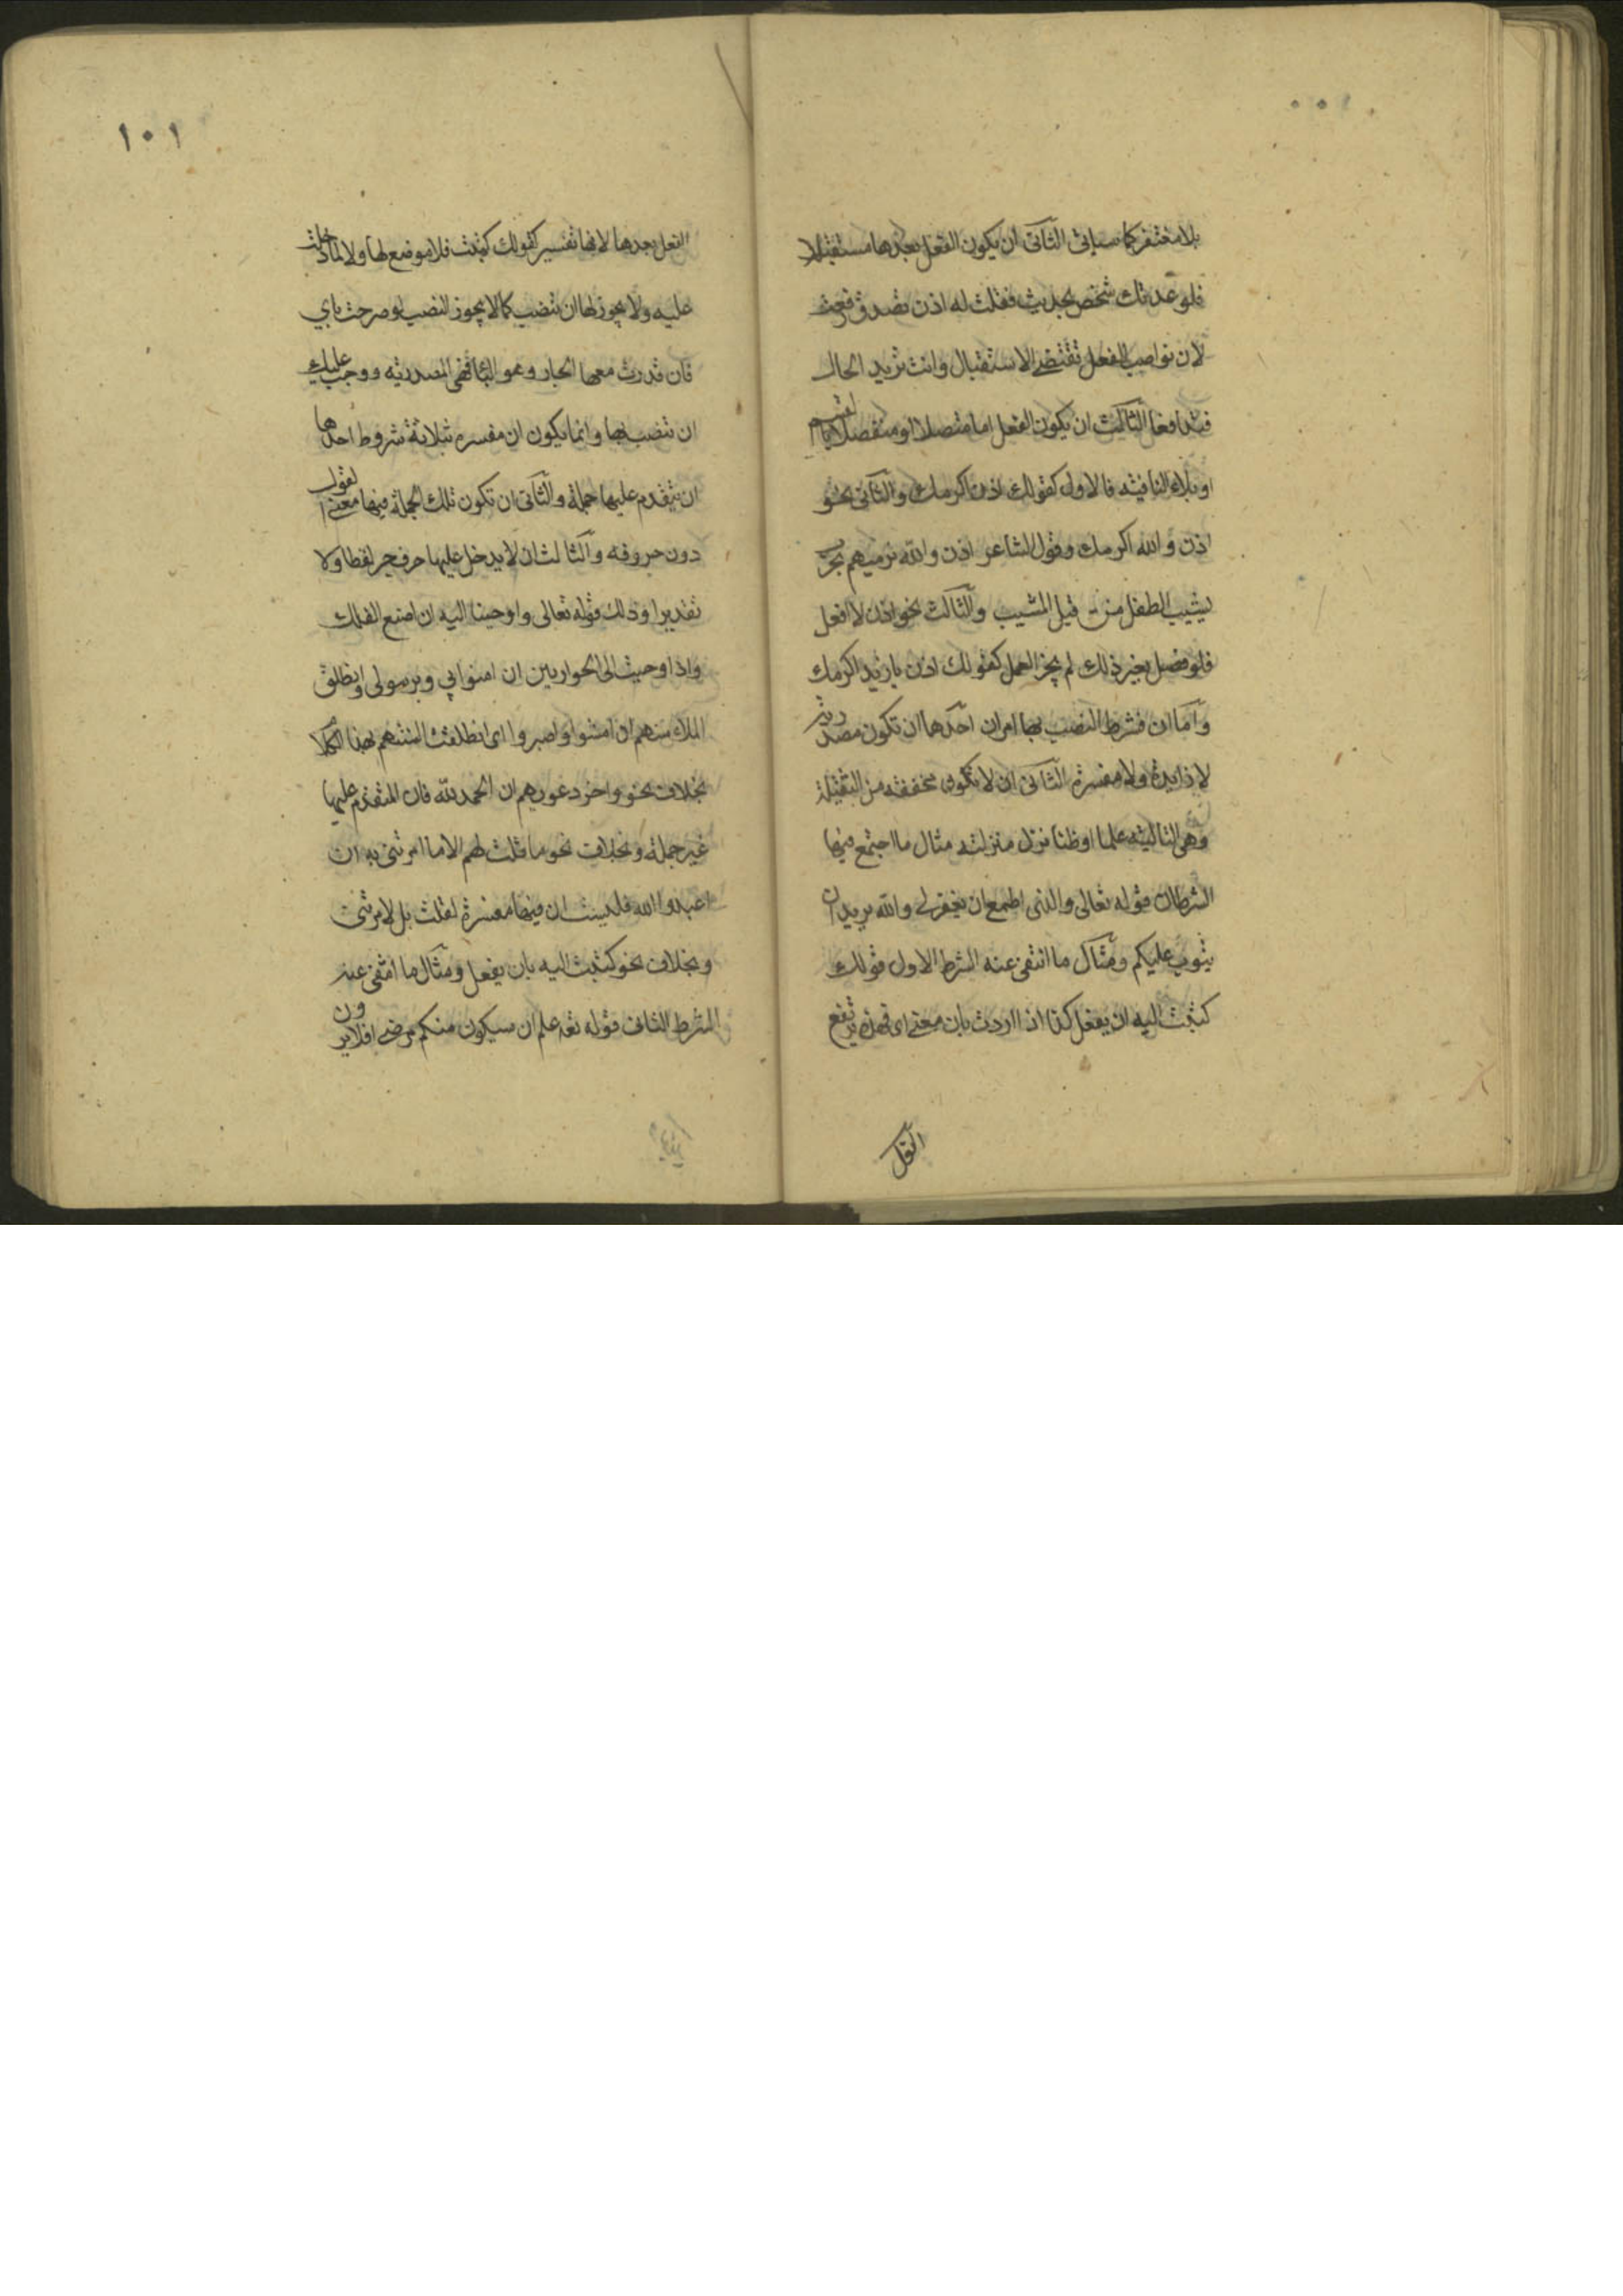 بلا مغتفر كما سياتي الثاني ان يكون الفعل بعدها مستقبلا
فلو حدثك شخص بحديث فقلت له اذن تصدق رفعت
لان نواصب الفعل تقتضي الاستقبال وانت تريد الحال
فتدافعا الثالث ان يكون الفعل اما متصلا او منفصلا بالقسم
او بلا النافيه فالاول كقولك اذن اكرمك والثاني نحو
اذن والله اكرمك وقول الشاعر اذن والله نرميهم بحرب
يشيب الطفل من قبل المشيب والثالث نحو اذن لا افعل
فلو فصل بغير ذلك لم يجز العمل كقولك اذن يا زيد اكرمك
واما ان فشرط النصب بها امران احدها ان تكون مصدريه
لا زايدة ولا مفسرة الثاني ان لا تكون مخففه من الثقيلة
وهي التاليه علما او ظنا نزل منزلته مثال ما اجتمع فيها
الشرطان قوله تعالى والذي اطمع ان يغفر لي والله يريد ان
يتوب عليكم ومثال ما انتفى عنه الشرط الاول قولك
كتبت اليه ان يفعل كذا اذا اردت بان معنى اي فهذه يرتفع
الفعل
١٠١
الفعل بعدها لانها تفسير لقولك كتبت فلا موضع لها ولا لما دخلت
عليه ولا يجوز لها ان تنصب كما لا يجوز النصب لو صرحت باي
فان قدرت معها الجار وهو البا فهي المصدريه ووجب عليك
ان تنصب بها وانما يكون ان مفسره بثلاثة شروط احدها
ان يتقدم عليها جملة والثاني ان تكون تلك الجملة فيها معنى القول
دون حروفه والثالث ان لا يدخل عليها حرف جر لفظا ولا
تقديرا وذلك قوله تعالى واوحينا اليه ان اصنع الفلك
واذ اوحيت الى الحواريين ان امنوا بي وبرسولي وانطلق
الملاء منهم ان امشوا واصبروا اي انطلقت السنتهم بهذا الكلا
بخلاف نحو واخر دعويهم ان الحمد لله فان المتقدم عليها
غير جملة وبخلاف نحو ما قلت لهم الا ما امرتني به ان
اعبدوا الله فليست ان فيها مفسرة لقلت بل لامرتني
وبخلاف نحو كتبت اليه بان يفعل ومثال ما انتفى عنه
الشرط الثاني قوله تعه علم ان سيكون منكم مرضى افلا يرون